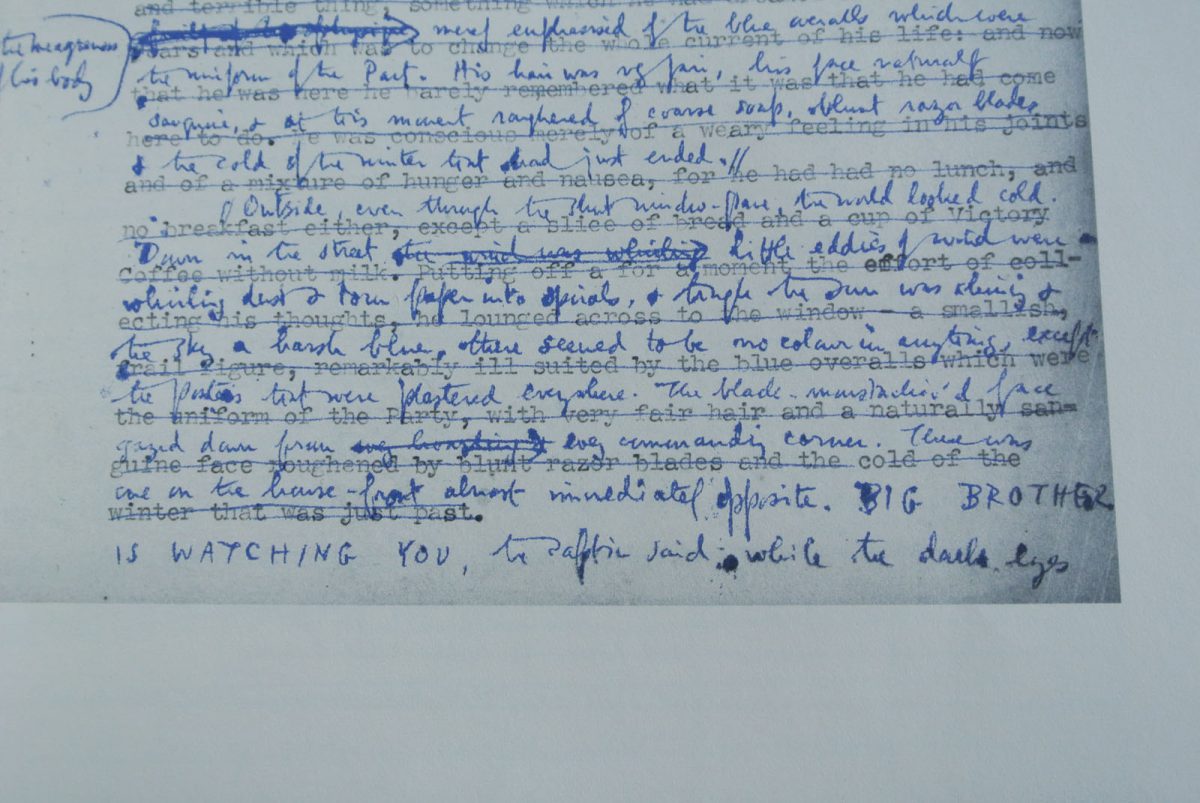 and terrible thing, something which he had
the meagreness
of his body
merely emphasised by the blue overalls which were
years and which was to change the whole current of his life: and now
the uniform of the Party. His hair was very fair, his face naturally
that he was here he barely remembered what it was that he had come
sanguine, & at this moment roughened by coarse soap, blunt razor blades
here to do. He was conscious merely of a weary feeling in his joints
& the cold of the winter that had just ended.//
and of a mixture of hunger and nausea, for he had had no lunch, and
Outside, even through the shut window-pane, the world looked cold.
no breakfast either, except a slice of bread and a cup of Victory
Down in the street the wind was whirling little eddies of wind were
Coffee without milk. Putting off a for a moment the effort of coll-
whirling dust & torn paper into spirals, & though the sun was shining &
ecting his thoughts, he lounged across to the window - a smallish,
the sky a harsh blue, there seemed to be no colour in anything, except
frail figure, remarkably ill suited by the blue overalls which were
the posters that were plastered everywhere. The black-moustachio'd face
the uniform of the Party, with very fair hair and a naturally san=
gazed down from every commanding corner. There was
guine face roughened by blunt razor blades and the cold of the
one on the house-front almost immediately opposite. BIG BROTHER
winter that was just past.
IS WATCHING YOU, the caption said: while the dark eyes